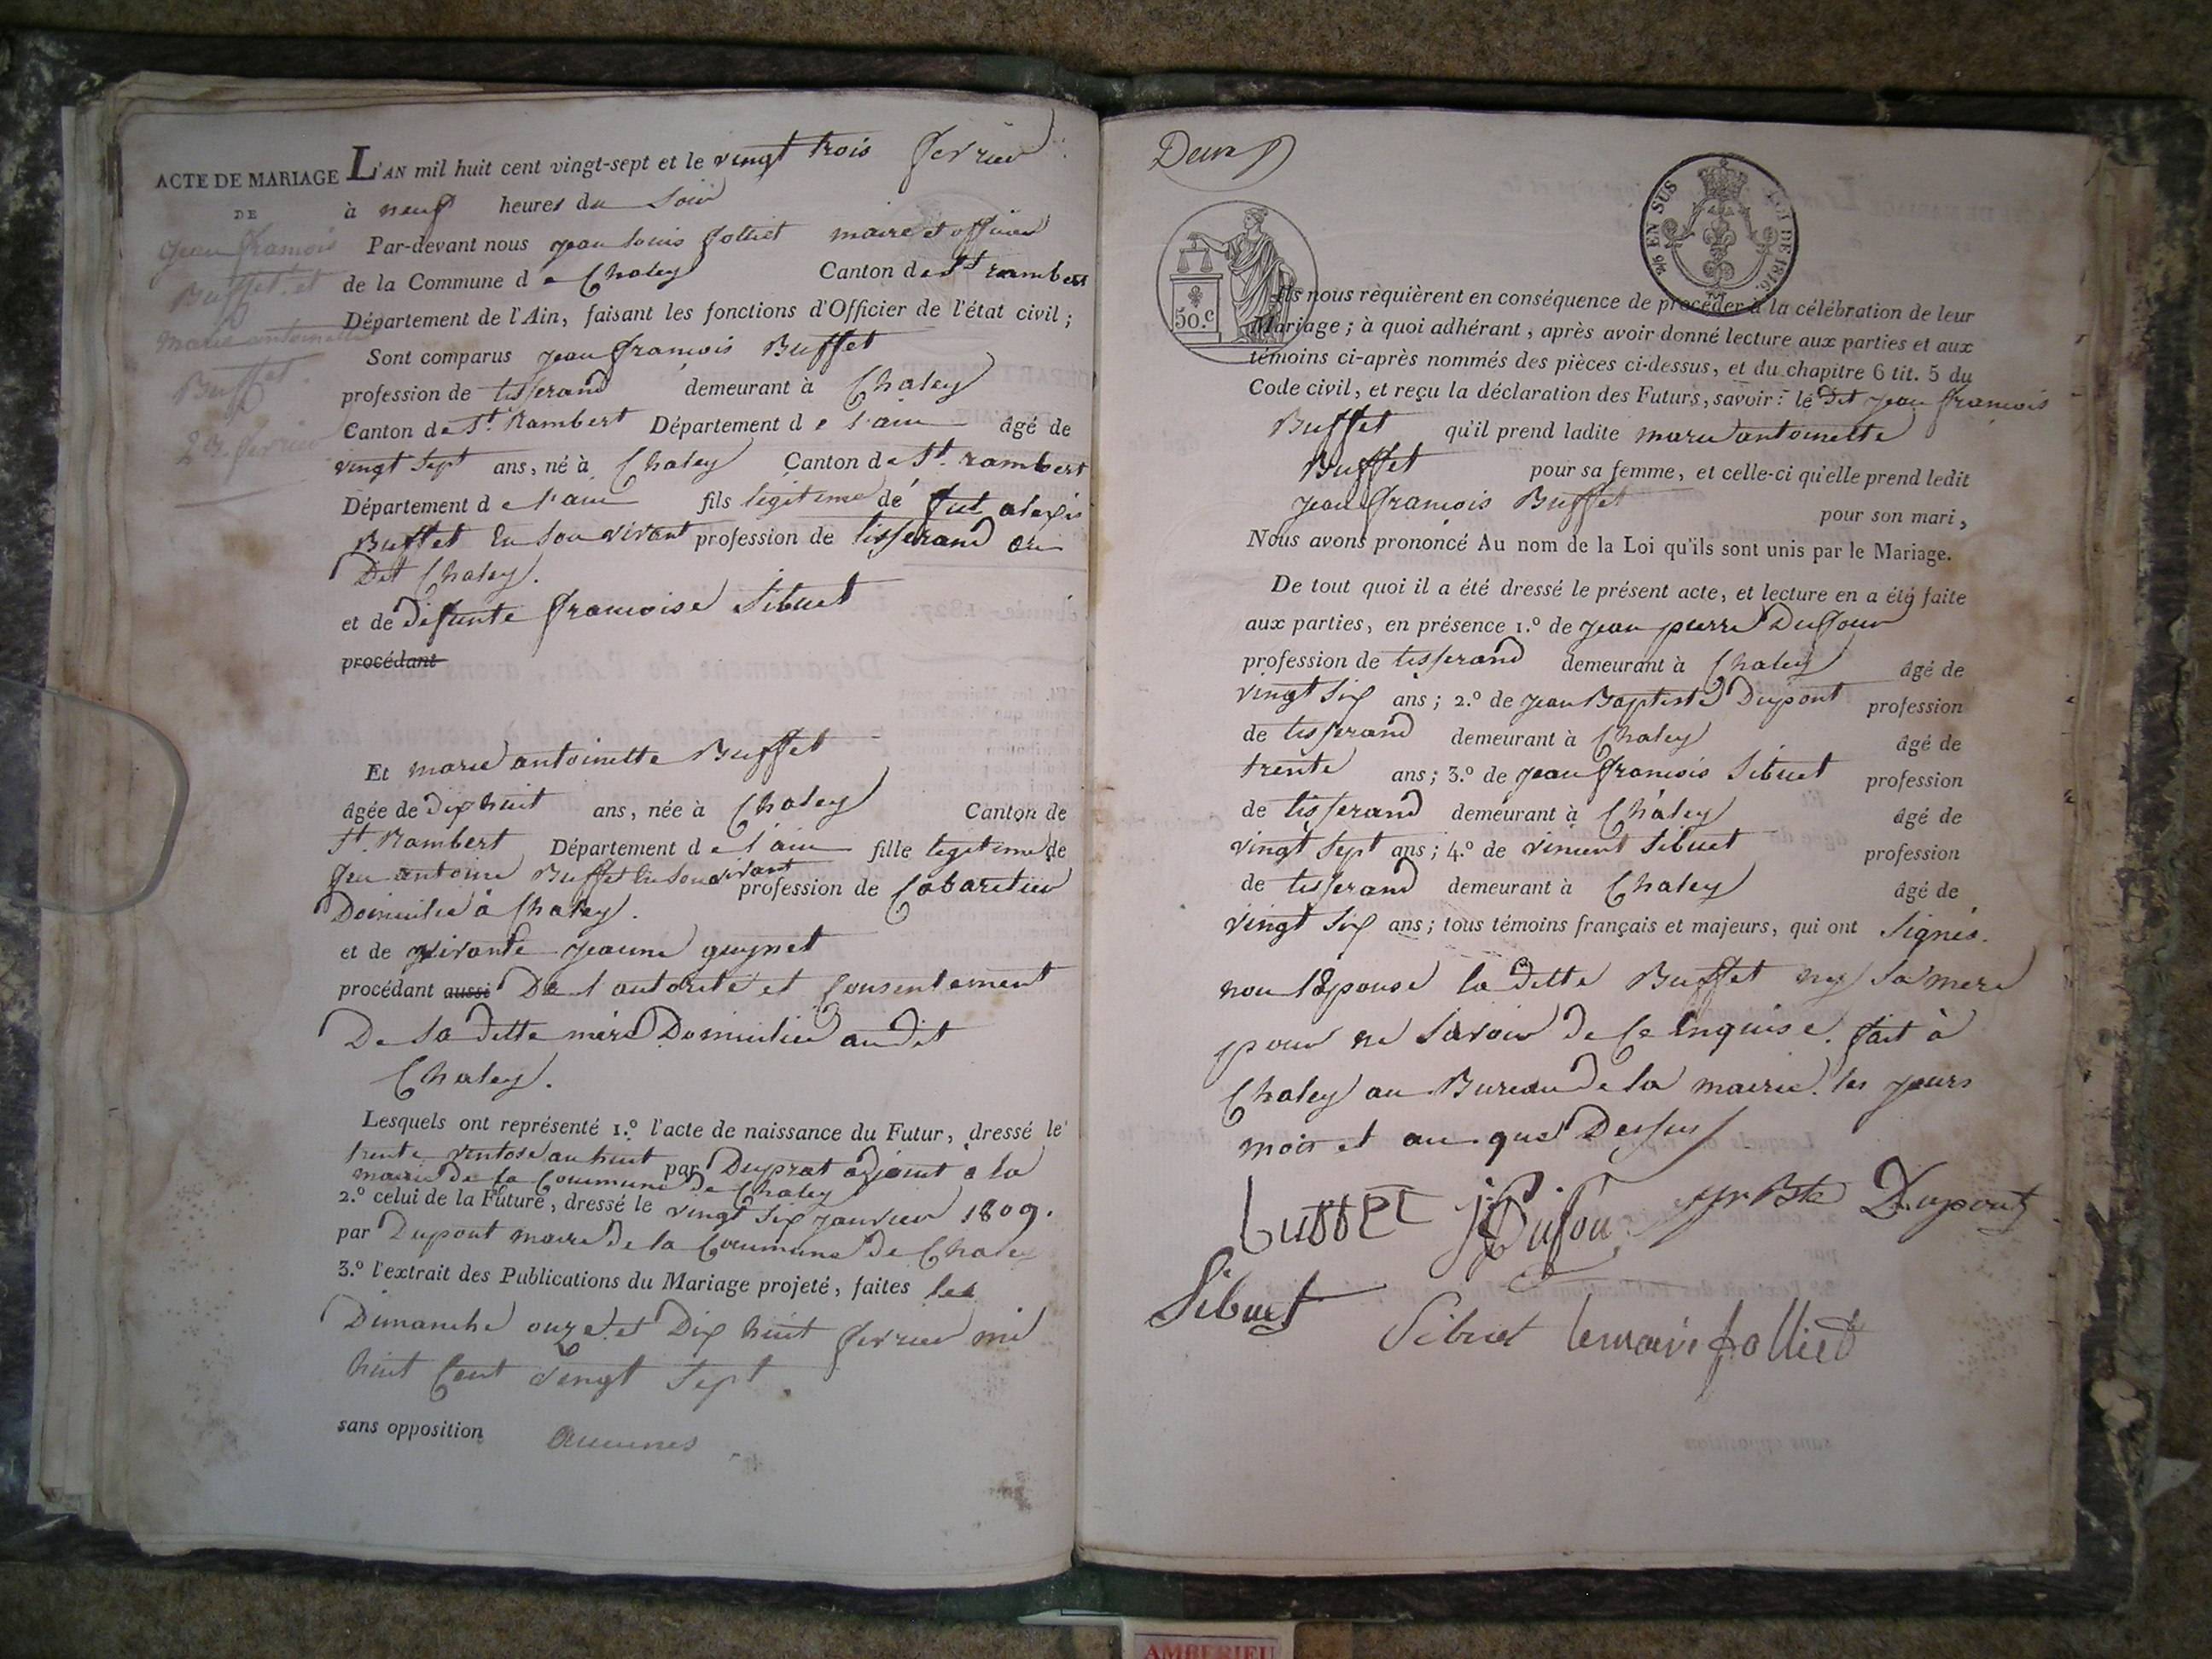 ACTE DE MARIAGE
DE
jean françois
Buffet et
marie antoinette
Buffet.
23. fevrier
L'AN mil huit cent vingt-sept et le vingt trois fevrier
à neuf heures du Soir
Par-devant nous jean Louis folliet maire et officier
de la Commune d e Chaley Canton de St rambert
Département de l'Ain, faisant les fonctions d'Officier de l'état civil;
Sont comparus jean françois Buffet
profession de tisserand demeurant à Chaley
Canton de St. Rambert Département d e l'ain âgé de
vingt Sept ans, né à Chaley Canton de St. rambert
Département d e l'ain fils légitime de fut alexis
Buffet En Son vivant profession de tisserand au
Dit Chaley.
et de defunte françoise Sibuet
procédant
Et marie antoinette Buffet
âgée de dix huit ans, née à Chaley Canton de
St. Rambert Département d e l'ain fille legitime de
feu antoine Buffet En Son vivant profession de Cabaretier
Domicilié à Chaley.
et de vivante jeanne guynet
procédant aussi De l'autorité et Consentement
De Sa ditte mère Domiciliée audit
Chaley.
Lesquels ont représenté 1.º l'acte de naissance du Futur, dressé le
trente ventose an huit par Duprat adjoint à la
mairie de la Commune de Chaley
2.º celui de la Future, dressé le vingt Six janvier 1809.
par Dupont maire de la Commune de Chaley
3.º l'extrait des Publications du Mariage projeté, faites les
Dimanche onze et Dix huit fevrier mil
huit Cent vingt Sept.
sans opposition aucunes
Deux
50.c
2/6 EN SUS LOI DE 1816.
Ils nous requièrent en conséquence de procéder à la célébration de leur
Mariage; à quoi adhérant, après avoir donné lecture aux parties et aux
témoins ci-après nommés des pièces ci-dessus, et du chapitre 6 tit. 5 du
Code civil, et reçu la déclaration des Futurs, savoir: le dit jean françois
Buffet qu'il prend ladite marie antoinette
Buffet pour sa femme, et celle-ci qu'elle prend ledit
jean françois Buffet pour son mari,
Nous avons prononcé Au nom de la Loi qu'ils sont unis par le Mariage.
De tout quoi il a été dressé le présent acte, et lecture en a été faite
aux parties, en présence 1.º de jean pierre Dufour
profession de tisserand demeurant à Chaley âgé de
vingt Six ans; 2.º de jean Baptiste Dupont profession
de tisserand demeurant à Chaley âgé de
trente ans; 3.º de jean françois Sibuet profession
de tisserand demeurant à Chaley âgé de
vingt Sept ans; 4.º de vincent Sibuet profession
de tisserand demeurant à Chaley âgé de
vingt Six ans; tous témoins français et majeurs, qui ont Signés.
non l'Epouse la ditte Buffet ny Sa mere
pour ne Savoir de Ce Enquise. fait à
Chaley au Bureau de la mairie. les jours
mois et an que Dessus
buffet jp Dufour jn Bte Dupont
Sibuet
Sibuet lemaire folliet
AMBERIEU